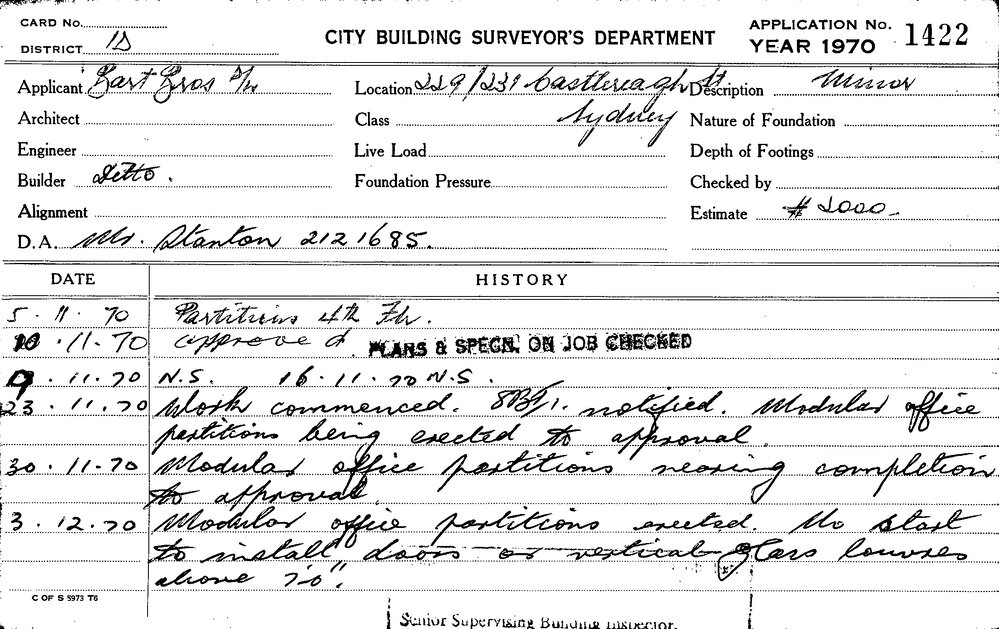 CARD No.
DISTRICT 1D
CITY BUILDING SURVEYOR'S DEPARTMENT
APPLICATION No. 1422
YEAR 1970
Applicant Bros P/L
Location 229/231 Castlereagh St
Sydney
Description Minor
Architect
Class
Nature of Foundation
Engineer
Live Load
Depth of Footings
Builder Ditto.
Foundation Pressure
Checked by
Alignment
Estimate $2000-
D.A. Mr. Stanton 2121685.
DATE HISTORY
5.11.70 Partitions 4th Flr.
10.11.70 approved PLANS & SPECN. ON JOB CHECKED
9.11.70 N.S. 16.11.70 N.S.
23.11.70 Work commenced. notified. Modular office
partitions being erected to approval.
30.11.70 Modular office partitions nearing completion
to approval.
3.12.70 Modular office partitions erected. No start
to install doors or vertical glass louvres
above 7'0".
C OF S 5973 T6
Senior Supervising Building Inspector.